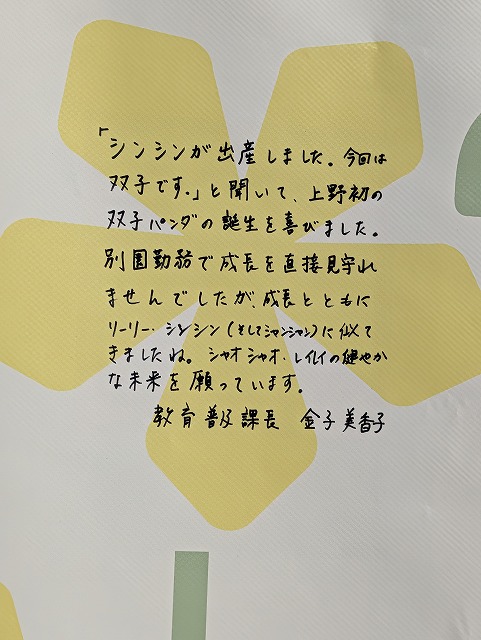 「シンシンが出産しました。今回は
双子です。」と聞いて、上野初の
双子パンダの誕生を喜びました。
別園勤務で成長を直接見守れ
ませんでしたが、成長とともに
リーリー・シンシン(そしてシャンシャン)に似て
きましたね。シャオシャオ・レイレイの健やか
な未来を願っています。
教育普及課長 金子美香子